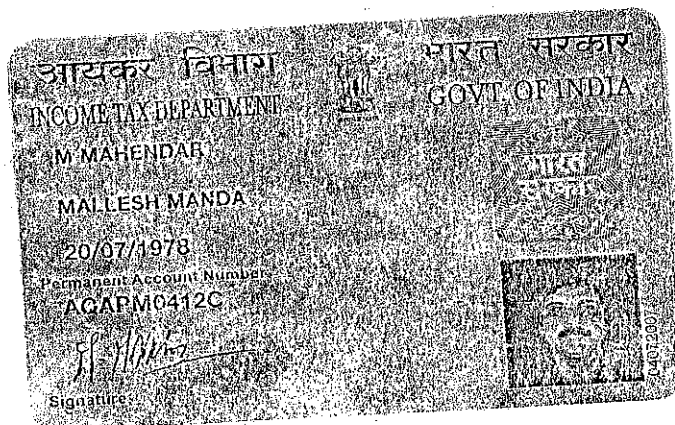 आयकर विभाग
भारत सरकार
INCOME TAX DEPARTMENT
GOVT. OF INDIA
M MAHENDAR
MALLESH MANDA
20/07/1978
Permanent Account Number
AQAPM0412C
Signature
भारत
सरकार